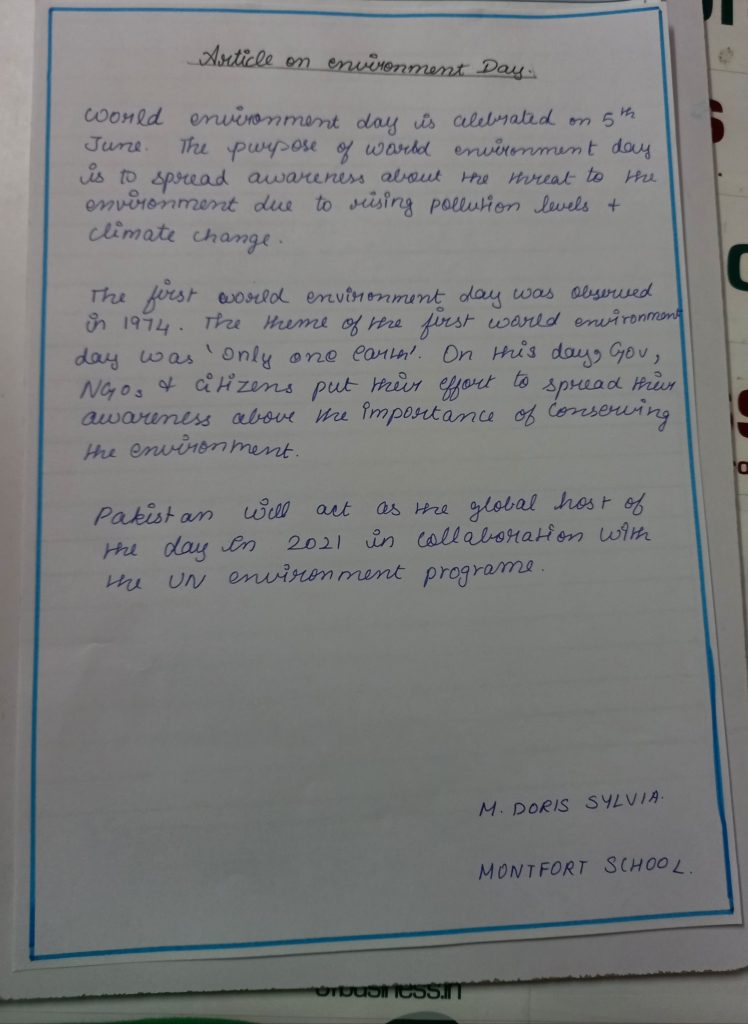 Article on environment Day.
World environment day is celebrated on 5th
June. The purpose of world environment day
is to spread awareness about the threat to the
environment due to rising pollution levels +
climate change.
The first world environment day was observed
in 1974. The theme of the first world environment
day was 'only one earth'. On this day, Gov,
NGOs & citizens put their effort to spread their
awareness above the importance of conserving
the environment.
Pakistan will act as the global host of
the day in 2021 in collaboration with
the UN environment programe.
M. DORIS SYLVIA.
MONTFORT SCHOOL.